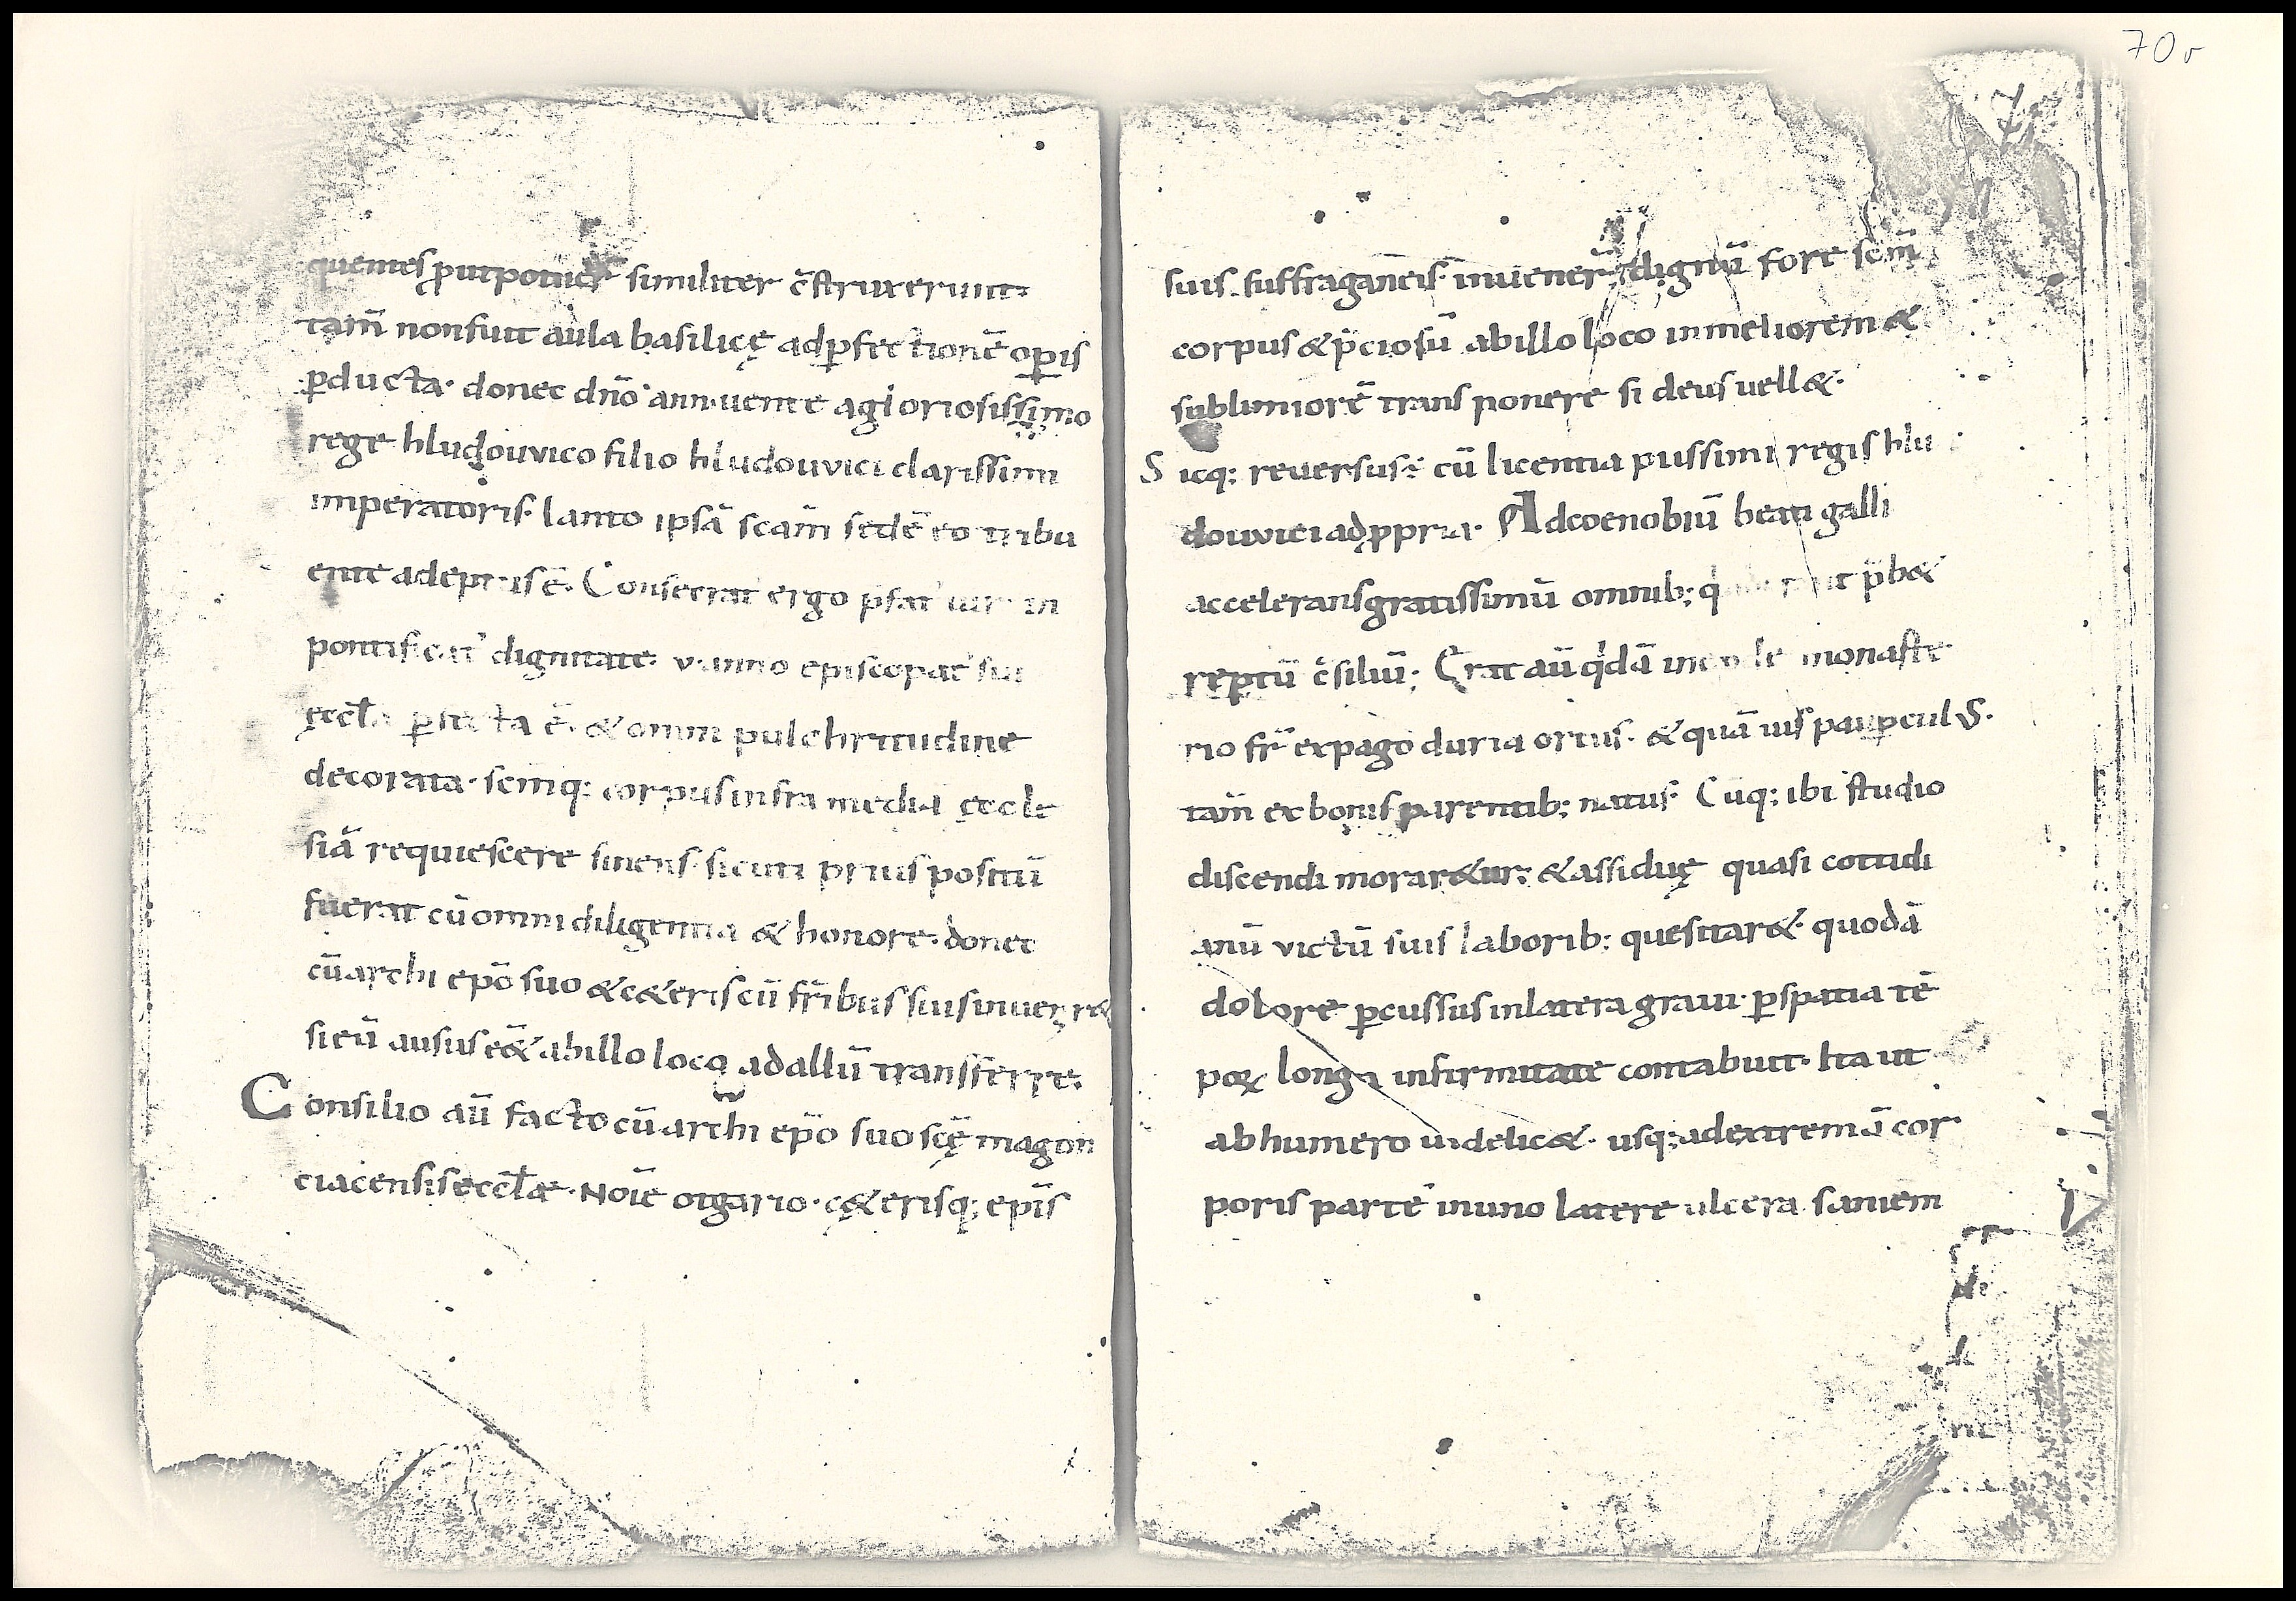 70r
quentes ꝓut potuer̄ similiter c̄struxerunt·
tam̄ non fuit aula basilicę ad ꝑfectionē oꝑis
ꝑducta· donec dn̄o annuente a gloriosissimo
rege hludouvico filio hludouvici clarissimi
imperatoris· lanto ipsā sc̄am sedē eo tribu
ente adeptus ē· Consecrat ergo
pontificat' dignitate· v· anno episcopat' sui
ęccl̄a ꝑfecta ē· & omni pulchritudine
decorata· sc̄mq: corpus infra mediā ęccle
siā requiescere sinens· sicuti prius positū
fuerat cū omni diligentia & honore· donec
cū archi ep̄o suo & c&eris cū fr̄ibus suis inuenir&
si eū ausus ēē& ab illo loco ad aliū transferre·
Consilio aū facto cū archi ep̄o suo sc̄ę magon
ciacensis eccl̄æ· Noīe otgario· c&erisq; ep̄is
suis suffraganeis inuener̄ dignū fore sc̄m
corpus & p̄ciosū ab illo loco in meliorem &
sublimiorē transponere si deus uell&·
Sicq; reuersus· cū licentia piissimi regis hlu
douvici ad ꝓpria· Ad coenobiū beati galli
accelerans gratissimū omnib; p̄b&
reptū c̄siliū; Erat aū q'dā in monaste
rio fr̄ ex pago duria ortus· & quāuis pauꝑculus·
tam̄ ex bonis parentib; natus· Cūq; ibi studio
discendi morar&ur; & assiduę quasi cottidi
anū victū suis laborib; quesitar&· quodā
dolore ꝑcussus in latera graui· ꝑ spatia tē
poꝝ longa infirmitate contabuit· Ita ut
ab humero uidelic&· usq; ad extremā cor
poris partē in uno latere ulcera saniem